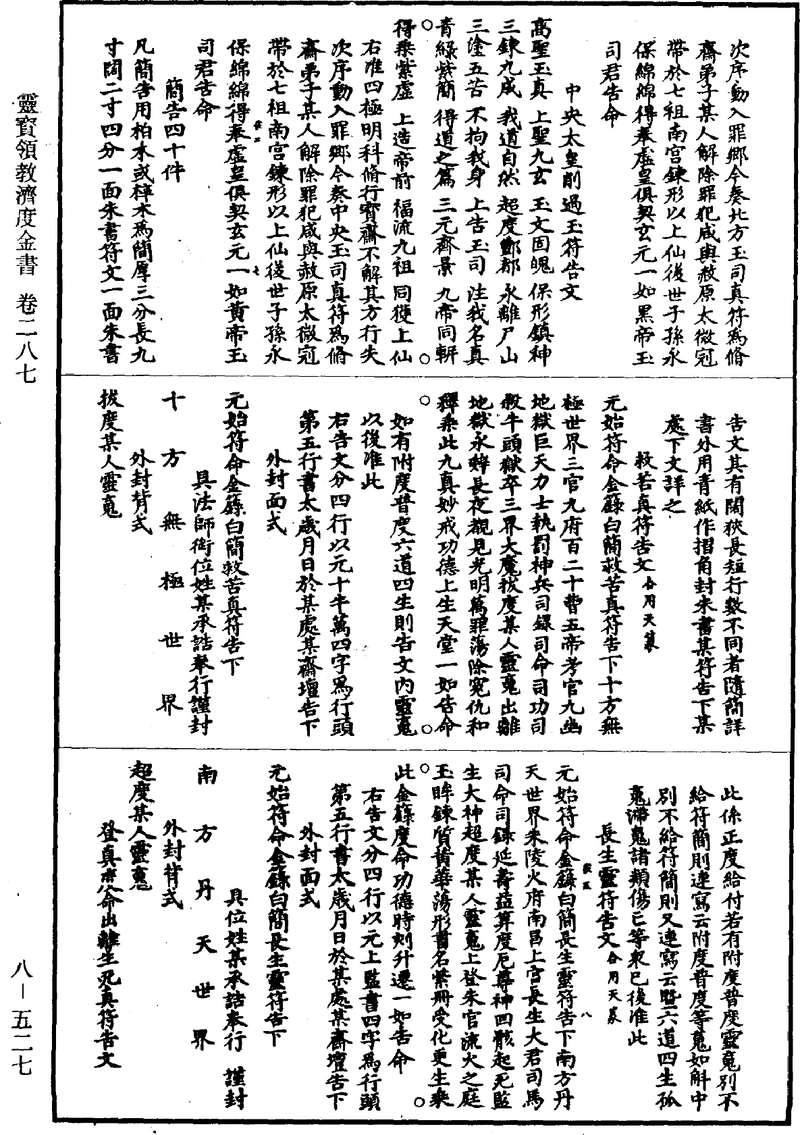 靈寶領教濟度金書 卷二八七
八—五二七
次序動入罪鄉今奏北方玉司真符爲脩
齋弟子某人解除罪犯咸與赦原太微冠
帶於七祖南宮鍊形以上仙後世子孫永
保綿綿得奉虛皇俱契玄元一如黑帝玉
司君告命
中央太皇削過玉符告文
高聖玉真 上聖九玄 玉文固魄 保形鎮神
三鍊九成 我道自然 超度酆都 永離尸山
三塗五苦 不拘我身 上告玉司 注我名真
青綠紫簡 得道之篇 三元齋景 九帝同軿
得乘紫虛 上造帝前 福流九祖 同獲上仙
右准四極明科脩行寶齋不解其方行失
次序動入罪鄉今奏中央玉司真符爲脩
齋弟子某人解除罪犯咸與赦原太微冠
帶於七祖南宮鍊形以上仙後世子孫永
保綿綿得奉虛皇俱契玄元一如黃帝玉
司君告命
簡告四十件
凡簡告用柏木或梓木爲簡厚三分長九
寸闊二寸四分一面朱書符文一面朱書
告文其有闊狹長短行數不同者隨簡詳
書外用青紙作摺角封朱書某符告下某
處下文詳之
救苦真符告文 合用天篆
元始符命金籙白簡救苦真符告下十方無
極世界三官九府百二十曹五帝考官九幽
地獄巨天力士執罰神兵司錄司命司功司
殺牛頭獄卒三界大魔拔度某人靈䰟出離
地獄永辭長夜覩見光明萬罪蕩除冤仇和
釋乘此九真妙戒功德上生天堂一如告命
如有附度普度六道四生則告文內靈䰟
以後准此
右告文分四行以元十牛萬四字爲行頭
第五行書太歲月日於某處某齋壇告下
外封面式
元始符命金籙白簡救苦真符告下
具法師銜位姓某承誥奉行謹封
十方無極世界
外封背式
拔度某人靈䰟
此係正度給付若有附度普度靈䰟別不
給符簡則連寫云附度普度等䰟如斛中
別不給符簡則又連寫云曁六道四生孤
䰟滯䰟諸類傷亡等衆已後准此
長生靈符告文 合用天篆
元始符命金籙白簡長生靈符告下南方丹
天世界朱陵火府南昌上宮長生大君司馬
司命司錄延壽益算度厄尊神四骸起死監
生大神超度某人靈䰟上登朱宮流火之庭
玉眸鍊質黃華蕩形書名紫冊受化更生乘
此金籙度命功德時刻升遷一如告命
右告文分四行以元上監書四字爲行頭
第五行書太歲月日於某處某齋壇告下
外封面式
元始符命金籙白簡長生靈符告下
具位姓某承誥奉行 謹封
南方丹天世界
外封背式
超度某人靈䰟
登真度命出離生死真符告文